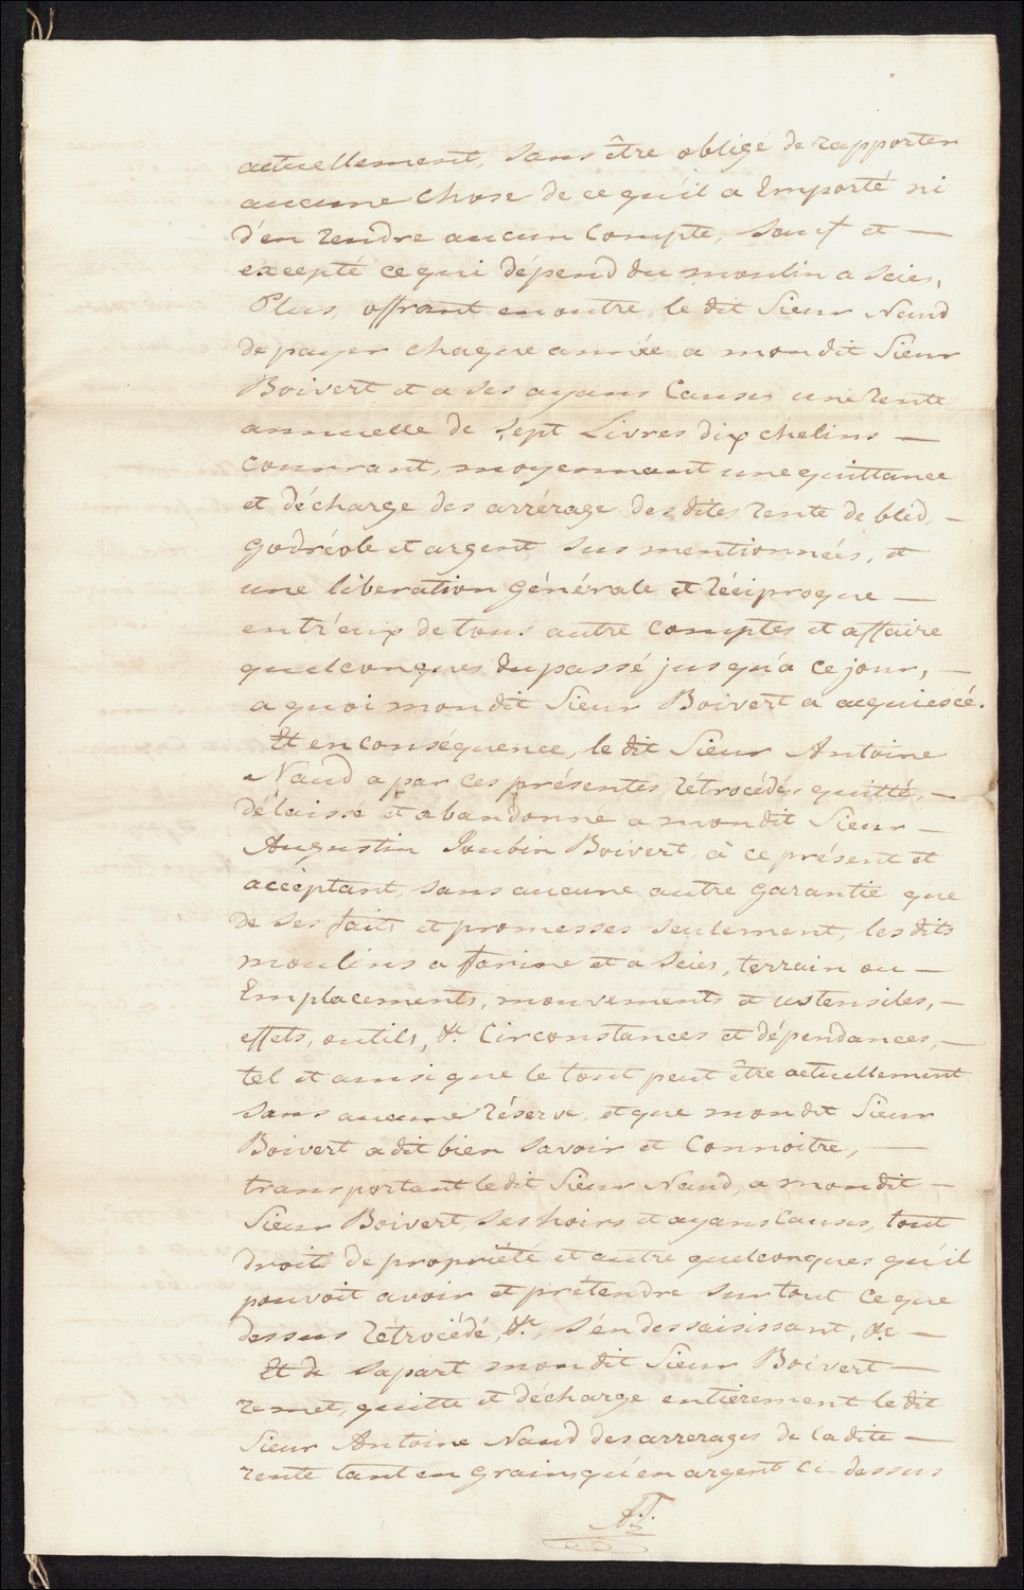 actuellement, sans être obligé de rapporter
aucune chose de ce qu'il a Emporté ni
d'en rendre aucun Compte, sauf et —
excepté ce qui dépend du moulin a scies,
Plus, offrant en outre, le dit Sieur Naud
de payer chaque année a mondit Sieur
Boivert et a ses ayans Causes une rente
annuelle de sept Livres dix chelins —
courrant, moyennant une quittance
et décharge des arrérage des dites rente de bléd, —
godréole et argent sus mentionnées, et
une libération générale et réciproque —
entr'eux de tous autre comptes et affaire
quelconques du passé jusqu'a ce jour, —
a quoi mondit Sieur Boivert a acquiescé.
Et en conséquence, le dit Sieur Antoine
Naud a par ces présentes rétrocédé, quitté, —
délaissé et abandonné a mondit Sieur —
Augustin Joubin Boivert, à ce présent et
accèptant, sans aucune autre garantie que
de ses faits et promesses seulement, les dits
moulins a farine et a scies, terrain ou —
Emplacements, mouvements et ustensiles, —
effets, outils, &c. Circonstances et dépendances, —
tel et ainsi que le tout peut être actuellement
sans aucune réserve, et que mondit Sieur
Boivert a dit bien savoir et Connoitre, —
transportant le dit Sieur Naud, a mondit —
Sieur Boivert, ses hoirs et ayans Causes, tout
droits de propriété et autre quelconques qu'il
pouvoit avoir et prétendre sur tout ce que
dessus rétrocédé, &c., s'en dessaisissant, &c —
Et de sa part mondit Sieur Boivert —
remet, quitte et décharge entièrement le dit
Sieur Antoine Naud des arrerages de la dite —
rente tant en grains qu'en argent ci-dessus